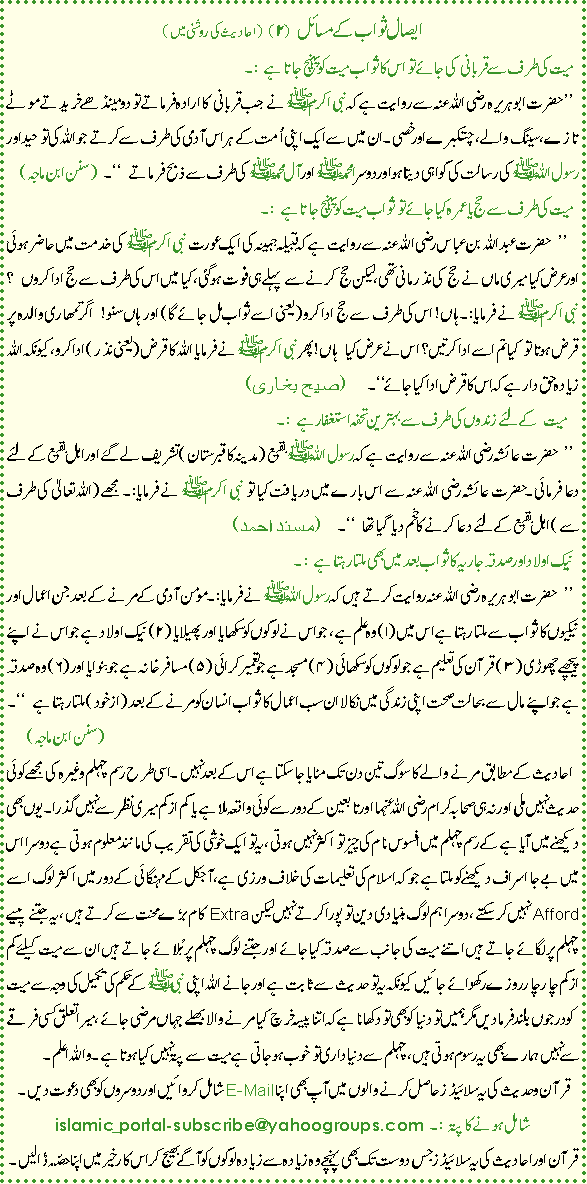 ایصال ثواب کے مسائل (۲) (احادیث کی روشنی میں)
میت کی طرف سے قربانی کی جائے تو اس کا ثواب میت کو پہنچ جاتا ہے :۔
’’ حضرت ابو ہریرہ رضی اللہ عنہ سے روایت ہے کہ نبی اکرم ﷺ نے جب قربانی کا ارادہ فرماتے تو دو مینڈھے خریدتے موٹے
تازے، سینگ والے، چتکبرے اور خصی۔ ان میں سے ایک اپنی اُمت کے ہر اس آدمی کی طرف سے کرتے جو اللہ کی توحید اور
رسول اللہ ﷺ کی رسالت کی گواہی دیتا ہو اور دوسرا محمد ﷺ اور آل محمد ﷺ کی طرف سے ذبح فرماتے ‘‘۔ (سنن ابن ماجہ)
میت کی طرف سے حج یا عمرہ کیا جائے تو ثواب میت کو پہنچ جاتا ہے :۔
’’ حضرت عبداللہ بن عباس رضی اللہ عنہ سے روایت ہے کہ قبیلہ جہینہ کی ایک عورت نبی اکرم ﷺ کی خدمت میں حاضر ہوئی
اور عرض کیا میری ماں نے حج کی نذر مانی تھی، لیکن حج کرنے سے پہلے ہی فوت ہوگئی، کیا میں اس کی طرف سے حج ادا کروں ؟
نبی اکرم ﷺ نے فرمایا :۔ ہاں! اس کی طرف سے حج ادا کرو (یعنی اسے ثواب مل جائے گا) اور ہاں سنو! اگر تمھاری والدہ پر
قرض ہوتا تو کیا تم اسے ادا کرتیں؟ اس نے عرض کیا ہاں! پھر نبی اکرم ﷺ نے فرمایا اللہ کا قرض (یعنی نذر) ادا کرو، کیونکہ اللہ
زیادہ حق دار ہے کہ اس کا قرض ادا کیا جائے‘‘۔ (صیح بخاری)
میت کے لئے زندوں کی طرف سے بہترین تحفہ استغفار ہے :۔
’’ حضرت عائشہ رضی اللہ عنہ سے روایت ہے کہ رسول اللہ ﷺ بقیع (مدینہ کا قبرستان) تشریف لے گئے اور اہل بقیع کے لئے
دعا فرمائی۔ حضرت عائشہ رضی اللہ عنہ سے اس بارے میں دریافت کیا تو نبی اکرم ﷺ نے فرمایا :۔ مجھے (اللہ تعالیٰ کی طرف
سے) اہل بقیع کے لئے دعا کرنے کا حکم دیا گیا تھا ‘‘۔ (مسند احمد)
نیک اولاد اور صدقہ جاریہ کا ثواب بعد میں بھی ملتا رہتا ہے :۔
’’ حضرت ابو ہریرہ رضی اللہ عنہ سے روایت کرتے ہیں کہ رسول اللہ ﷺ نے فرمایا :۔ مؤمن آدمی کے مرنے کے بعد جن اعمال اور
نیکیوں کا ثواب سے ملتا رہتا ہے اس میں (۱) وہ علم ہے، جو اس نے لوگوں کو سکھایا اور پھیلایا (۲) نیک اولاد ہے جو اس نے اپنے
پیچھے چھوڑی (۳) قرآن کی تعلیم ہے جو لوگوں کو سکھائی (۴) مسجد ہے جو تعمیر کرائی (۵) مسافر خانہ ہے جو بنوایا اور (۶) وہ صدقہ
ہے جو اپنے مال سے بحالت صحت اپنی زندگی میں نکالا ان سب اعمال کا ثواب انسان کو مرنے کے بعد (ازخود) ملتا رہتا ہے ‘‘۔
(سنن ابن ماجہ)
احادیث کے مطابق مرنے والے کا سوگ تین دن تک منایا جا سکتا ہے اس کے بعد نہیں۔ اسی طرح رسم چہلم وغیرہ کی مجھے کوئی
حدیث نہیں ملی اور نہ ہی صحابہ کرام رضی اللہ عنہما اور تابعین کے دور سے کوئی واقعہ ملا ہے یا کم از کم میری نظر سے نہیں گذرا۔ یوں بھی
دیکھنے میں آیا ہے کے رسم چہلم میں افسوس نام کی چیز تو اکثر نہیں ہوتی، یہ تو ایک خوشی کی تقریب کی مانند معلوم ہوتی ہے دوسرا اس
میں بے جا اسراف دیکھنے کو ملتا ہے جو کہ اسلام کی تعلیمات کی خلاف ورزی ہے، آجکل کے مہنگائی کے دور میں اکثر لوگ اسے
Afford نہیں کر سکتے، دوسرا ہم لوگ بنیادی دین تو پورا کرتے نہیں لیکن Extra کام بڑے محنت سے کرتے ہیں، یہ جتنے پیسے
چہلم پر لگائے جاتے ہیں اتنے میت کی جانب سے صدقہ کیا جائے اور جتنے لوگ چہلم پر بُلائے جاتے ہیں ان سے میت کیلئے کم
از کم چار چار روزے رکھوائے جائیں کیونکہ یہ تو حدیث سے ثابت ہے اور جانے اللہ اپنی نبی ﷺ کے حکم کی تکمیل کی وجہ سے میت
کو درجوں بلند فرمادیں مگر ہمیں تو دنیا کو بھی تو دکھانا ہے کہ اتنا پیسہ خرچ کیا مرنے والا بھلے جہاں مرضی جائے، میرا تعلق کسی فرقے
سے نہیں ہمارے بھی یہ رسوم ہوتی ہیں، چہلم سے دنیاداری تو خوب ہوجاتی ہے میت سے پتہ نہیں کیا ہوتا ہے۔ واللہ اعلم۔
قرآن و حدیث کی یہ سلائیڈز حاصل کرنے والوں میں آپ بھی اپنا E-Mail شامل کروائیں اور دوسروں کو بھی دعوت دیں۔
شامل ہونے کا پتہ :۔ islamic_portal-subscribe@yahoogroups.com
قرآن اور احادیث کی یہ سلائیڈز جس دوست تک بھی پہنچے وہ زیادہ سے زیادہ لوگوں کو آگے بھیج کر اس کار خیر میں اپنا حصّہ ڈالیں۔